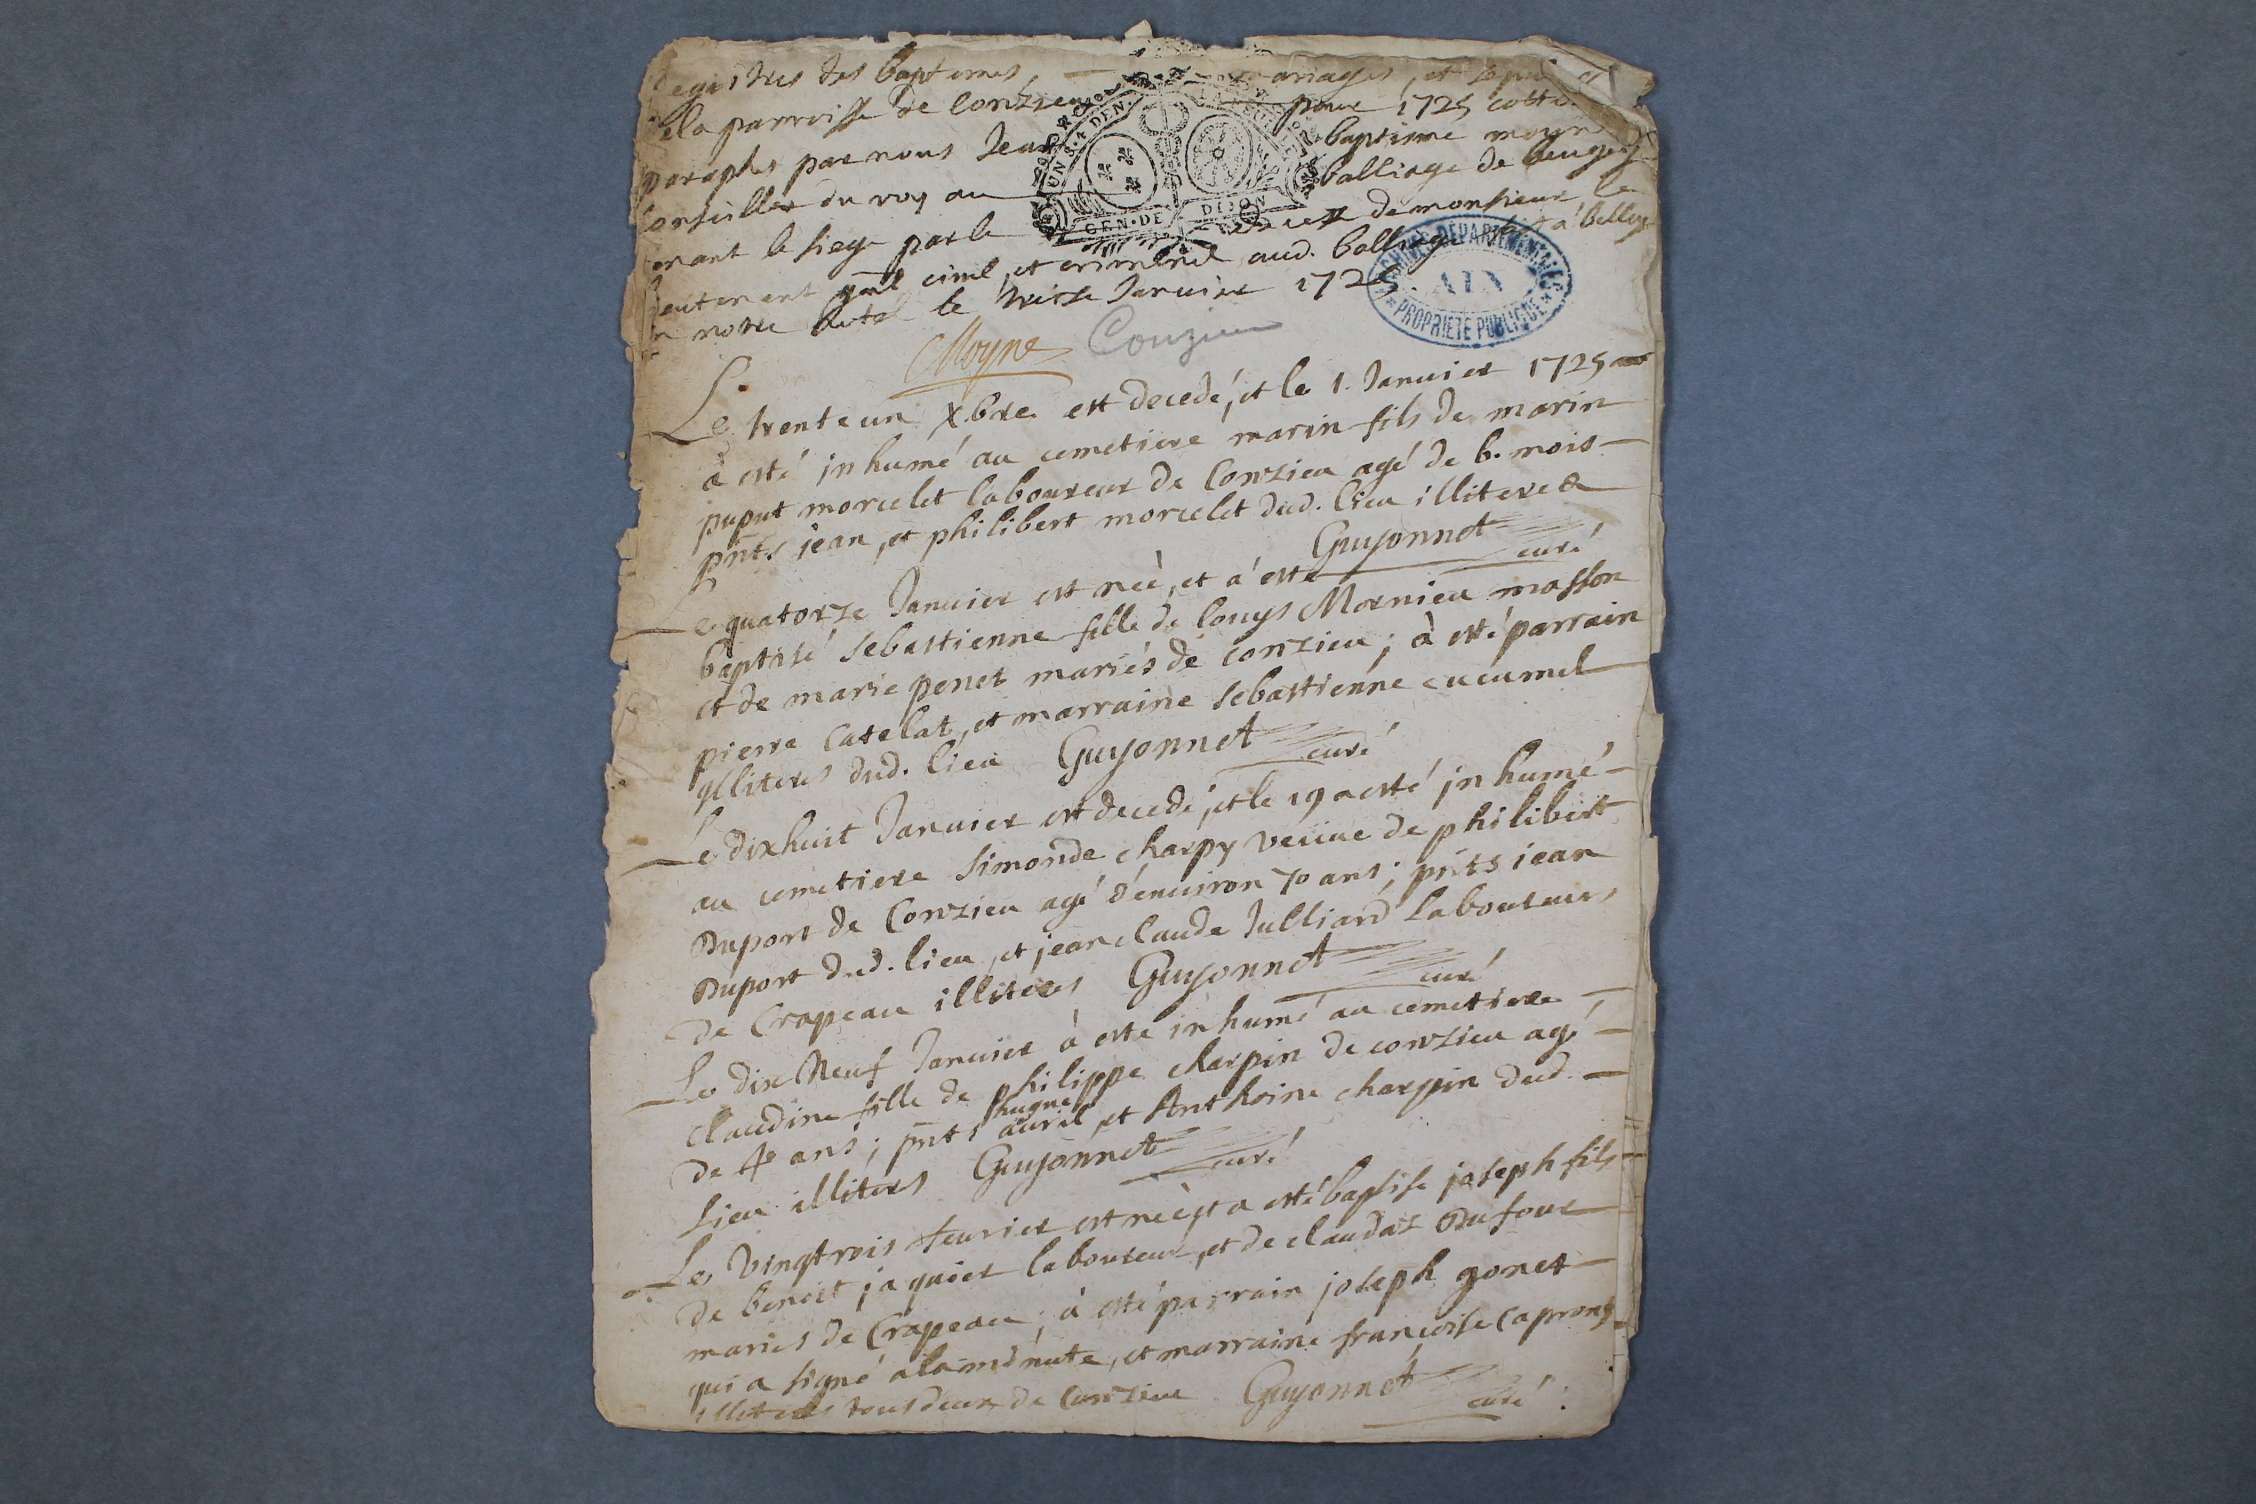 Registres des baptemes, mariages, et sepul
de la parroisse de Conzieu pour 1725 cotté
paraphés par nous Jean baptisme moyne
Conseiller du roy au balliage de beugey
tenant le siege par le de monsieur le
lieutenant gnal civil, et criminel aud. balliage fait à belley
en notre hotel le treize Janvier 1725.
Moyne Conzieu
UN S. 4 DEN.
GEN. DE DIJON
ARCHIVES DEPARTEMENTALES
AIN
PROPRIETE PUBLIQUE
Le trente un Xbre est decedé, et le 1. Janvier 1725
à esté jnhumé au cemetiere marin fils de marin
puput morcelet laboureur de Conzieu agé de 6. mois
pnts jean, et philibert morcelet dud. lieu illiteres
Guyonnet curé
Le quatorze Janvier est neè, et à esté
baptisé sebastienne fille de louys Mornieu masson
et de marie penet mariés de conzieu; à esté parrain
pierre Catelat, et marraine sebastienne cucumel
jlliteres dud. lieu Guyonnet curé
Le dixhuit Janvier est decedé, et le 19 a esté jnhumé
au cemetiere simonde charpy veüve de philibert
Duport de Conzieu agé d'environ 70 ans; pnts jean
Duport dud. lieu, et jean claude Julliard Laboureurs
de Crapeau illiteres Guyonnet curé
Le dix Neuf Janvier à esté inhumé au cemetiere
claudine fille de philippe charpin de conzieu agé
de 4 ans; pnts hugue avril, et Anthoine charpin dud.
Lieu illiteres Guyonnet curé
Le Vingtrois fevrier est neè, et a esté baptisé joseph fils
de benoit jaquier laboureur, et de claudaz Dufour
mariés de Crapeau; à esté parrain joseph gonet
qui a signé à la minute, et marraine françoise Capronz
illiteres tous deux de Conzieu Guyonnet curé